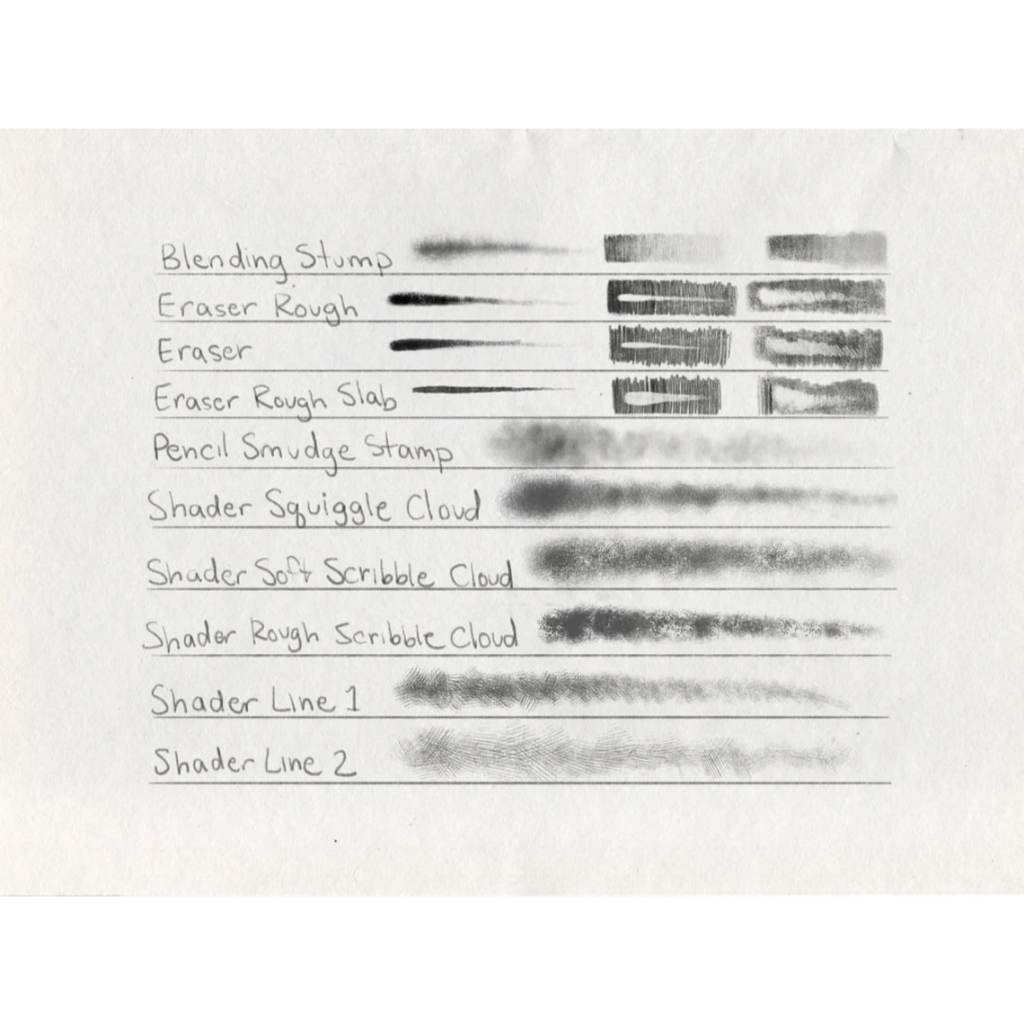 Blending Stump
Eraser Rough
Eraser
Eraser Rough Slab
Pencil Smudge Stamp
Shader Squiggle Cloud
Shader Soft Scribble Cloud
Shader Rough Scribble Cloud
Shader Line 1
Shader Line 2